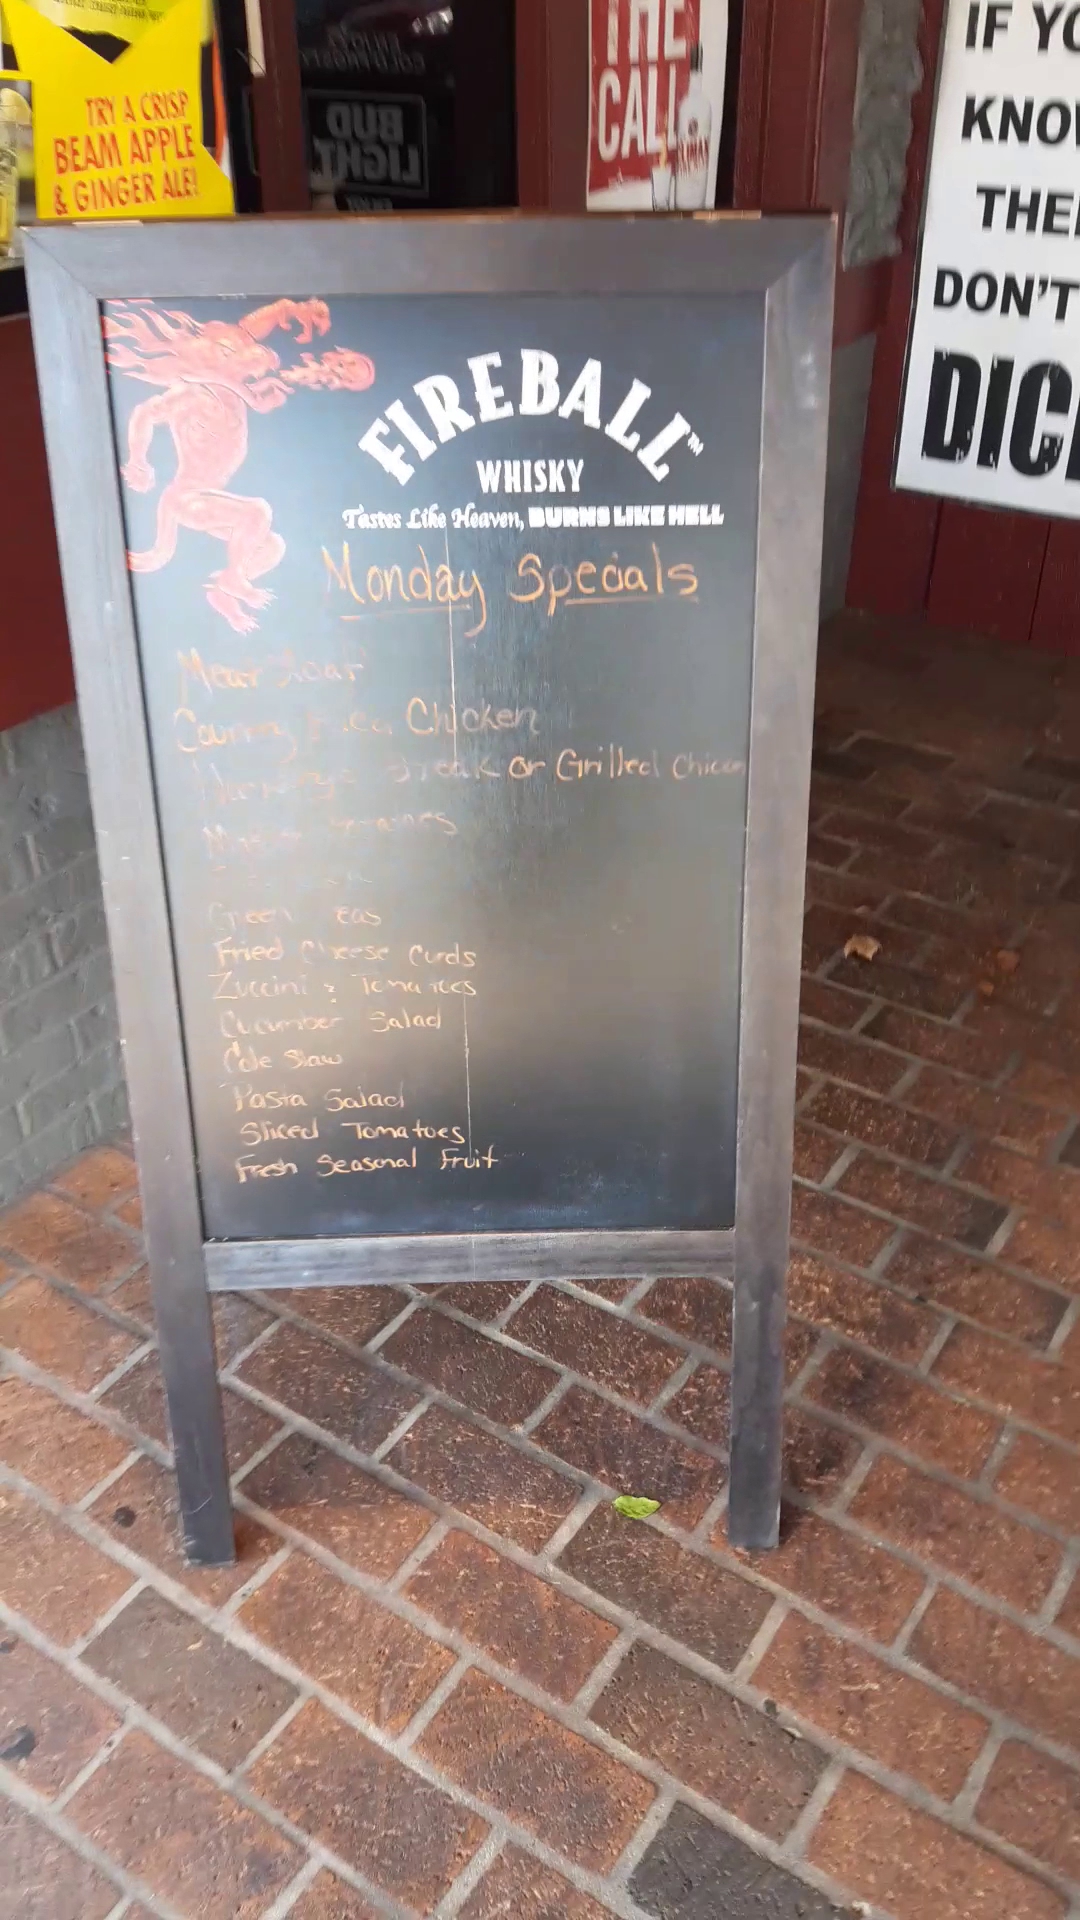 TRY A CRISP
BEAM APPLE
& GINGER ALE!
BUD
LIGHT
THE
CALL
IF YO
KNOW
THE
DON'T
DIC
FIREBALL™
WHISKY
Tastes Like Heaven, BURNS LIKE HELL
Monday Specials
Meat loaf
Country Fried Chicken
Steak or Grilled Chicen
Green
Fried Cheese Curds
Zuccini & Tomatoes
Cucumber Salad
Cole Slaw
Pasta Salad
Sliced Tomatoes
Fresh Seasonal Fruit